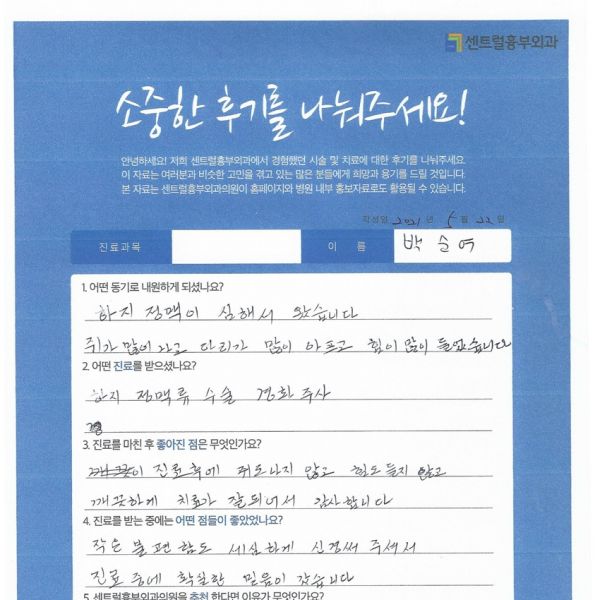 센트럴흉부외과
소중한 후기를 나눠주세요!
안녕하세요! 저희 센트럴흉부외과에서 경험했던 시술 및 치료에 대한 후기를 나눠주세요.
이 자료는 여러분과 비슷한 고민을 겪고 있는 많은 분들에게 희망과 용기를 드릴 것입니다.
본 자료는 센트럴흉부외과의원이 홈페이지와 병원 내부 홍보자료로도 활용될 수 있습니다.
작성일 2021 년 5 월 22 일
진료과목 이 름 박순여
1. 어떤 동기로 내원하게 되셨나요?
하지 정맥이 심해서 왔습니다
쥐가 많이 나고 다리가 많이 아프고 힘이 많이 들었습니다
2. 어떤 진료를 받으셨나요?
하지 정맥류 수술 경화주사
3. 진료를 마친 후 좋아진 점은 무엇인가요?
진료후에 쥐도나지 않고 힘도들지 않고
깨끗하게 치료가 잘되어서 감사합니다
4. 진료를 받는 중에는 어떤 점들이 좋았었나요?
작은 불편함도 세심하게 신경써 주셔서
진료 중에 확실한 믿음이 갔습니다
5. 센트럴흉부외과의원을 추천 한다면 이유가 무엇인가요?